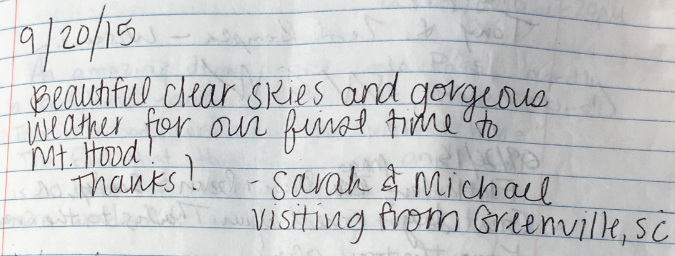 9/20/15
Beautiful clear skies and gorgeous
weather for our first time to
Mt. Hood!
Thanks! - Sarah & Michael
visiting from Greenville, SC